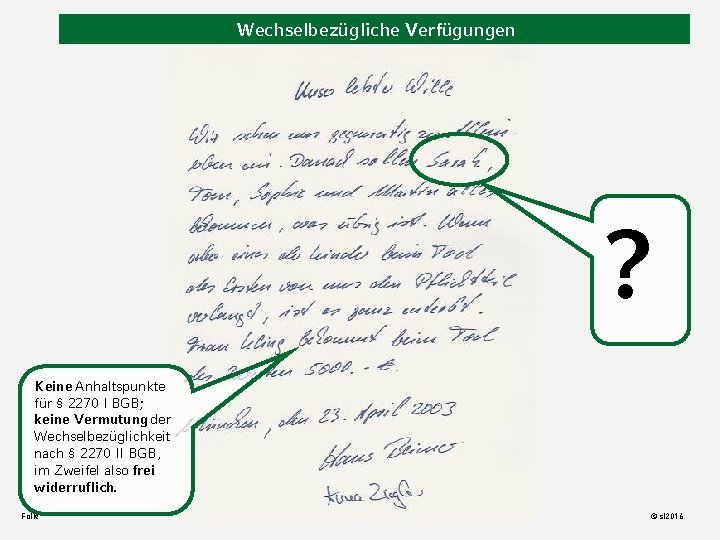 Wechselbezügliche Verfügungen
Unser letzter Wille
Wir setzen uns gegenseitig zum Allein-
erben ein. Danach sollen Sarah,
Tom, Sophie und Martin alles
bekommen, was übrig ist. Wenn
aber eines der Kinder beim Tod
des Ersten von uns den Pflichtteil
verlangt, ist es ganz enterbt.
Frau Kling bekommt beim Tod
des Letzten 5000.- €.
München, den 23. April 2003
Hans Beimer
Anna Ziegler
?
Keine Anhaltspunkte
für § 2270 I BGB;
keine Vermutung der
Wechselbezüglichkeit
nach § 2270 II BGB,
im Zweifel also frei
widerruflich.
Folie
© sl2016